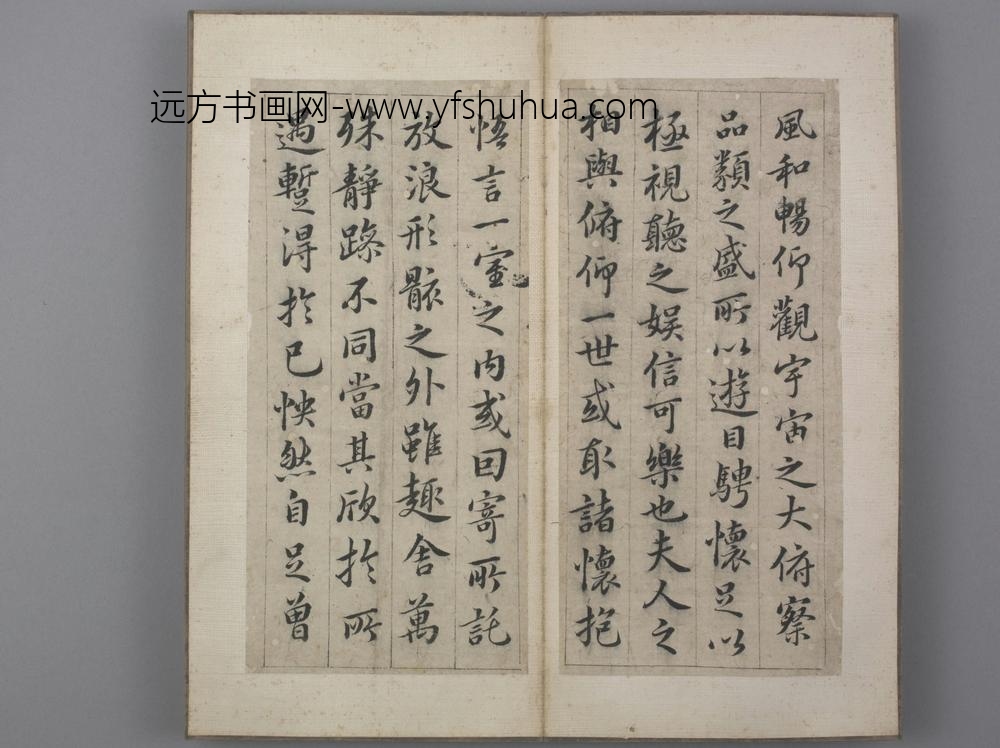 远方书画网-www.yfshuhua.com
風和暢仰觀宇宙之大俯察
品類之盛所以遊目騁懷足以
極視聽之娱信可樂也夫人之
相與俯仰一世或取諸懷抱
悟言一室之内或因寄所託
放浪形骸之外雖趣舍萬
殊靜躁不同當其欣於所
遇蹔得於已怏然自足曾